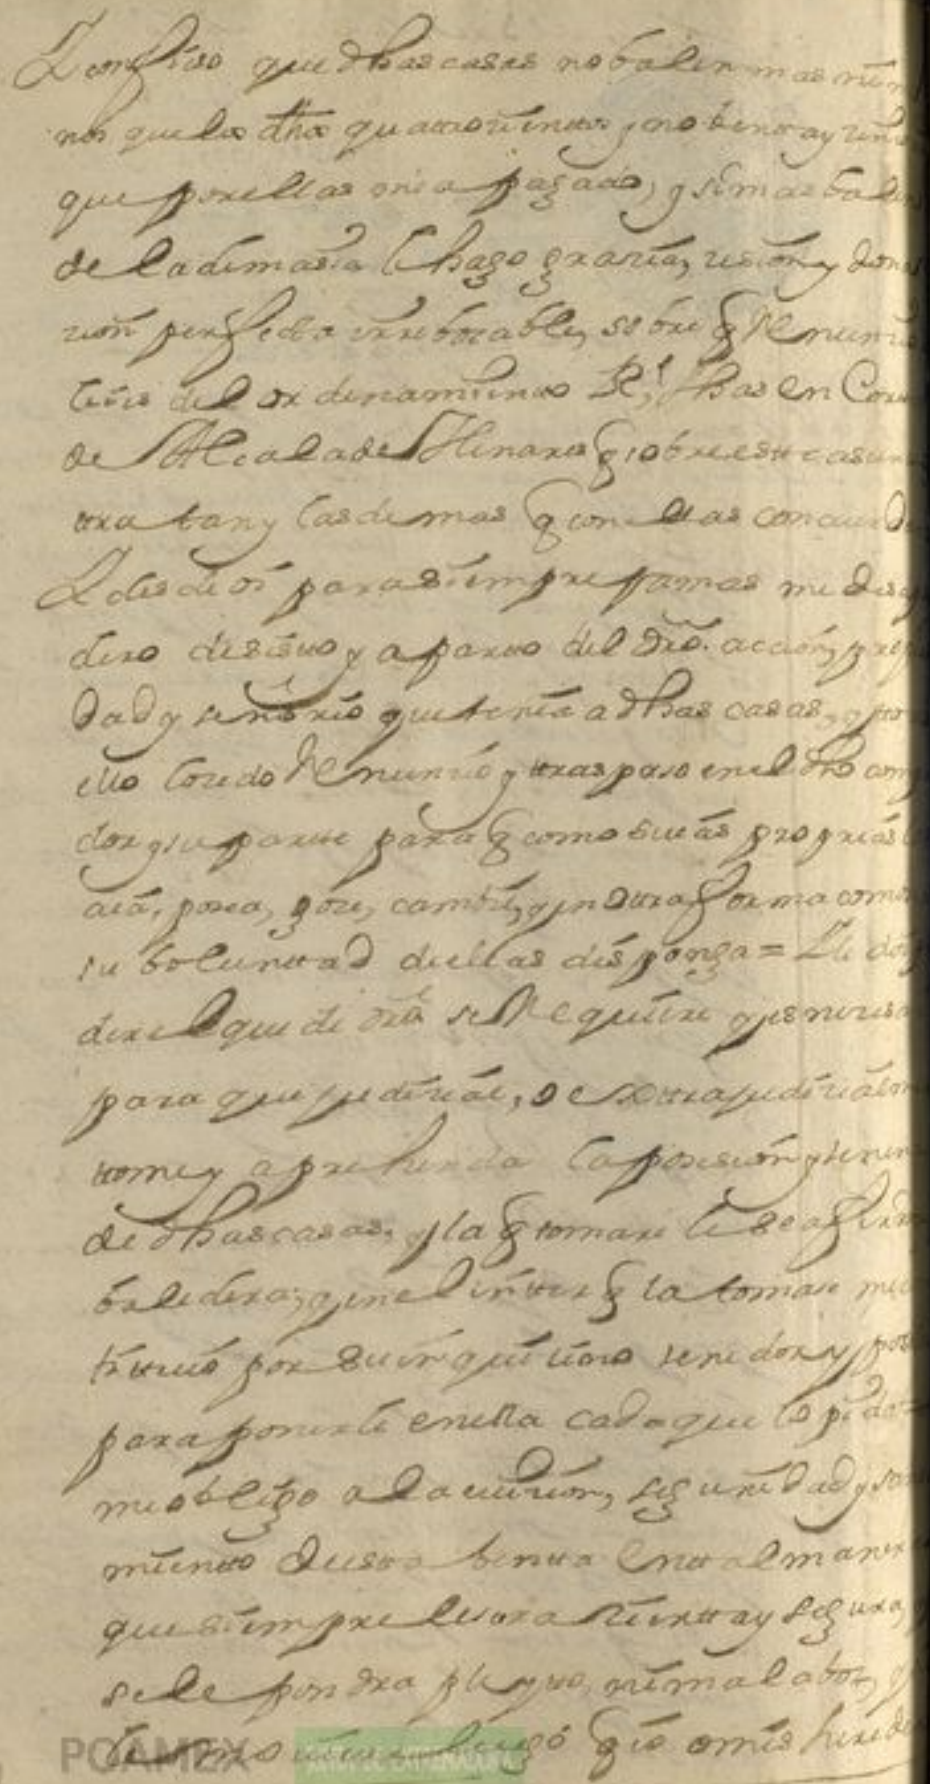 Y confieso que dhas casas no balen mas ni me
nos que los dhos quatrocientos y nobenta y cin
que por ellas me a pagado, y si mas balen
de la demasia le hago gracia, cesion y dona
cion perfecta irrebocable, sobre q Renuncio
leies del ordenamiento Rl, fhas en Cortes
de Alcala de Henares q sobre este caso
tratan y las demas q con ellas concuerdan
Y desde oi para siempre jamas me desapo
dero desisto y aparto del dro. accion, propie
dad y señorio que tenia a dhas casas, y
ello lo cedo Renuncio y traspaso en el dho compra
dor y su parte para q como suias proprias
aia, posea, goze, cambie, y en otra forma como
su boluntad dellas disponga = Y le doy
der el que de dro se Requiere y es necesa
para que judicial, o extrajudicialm
tome y aprehenda la posesion y tenen
de dhas casas, y la q tomare le sea firme
baledera, y en el inter q la tomare me
tituio por su inquilino tenedor y pose
para ponerle en ella cada que lo pida =
me obligo a la evicion, seguridad y sanea
miento desta benta en tal manera
que siempre le sera cierta y segura,
se le pondra pleyto, ni mal a boz,
q io o mis herede
POAMEX